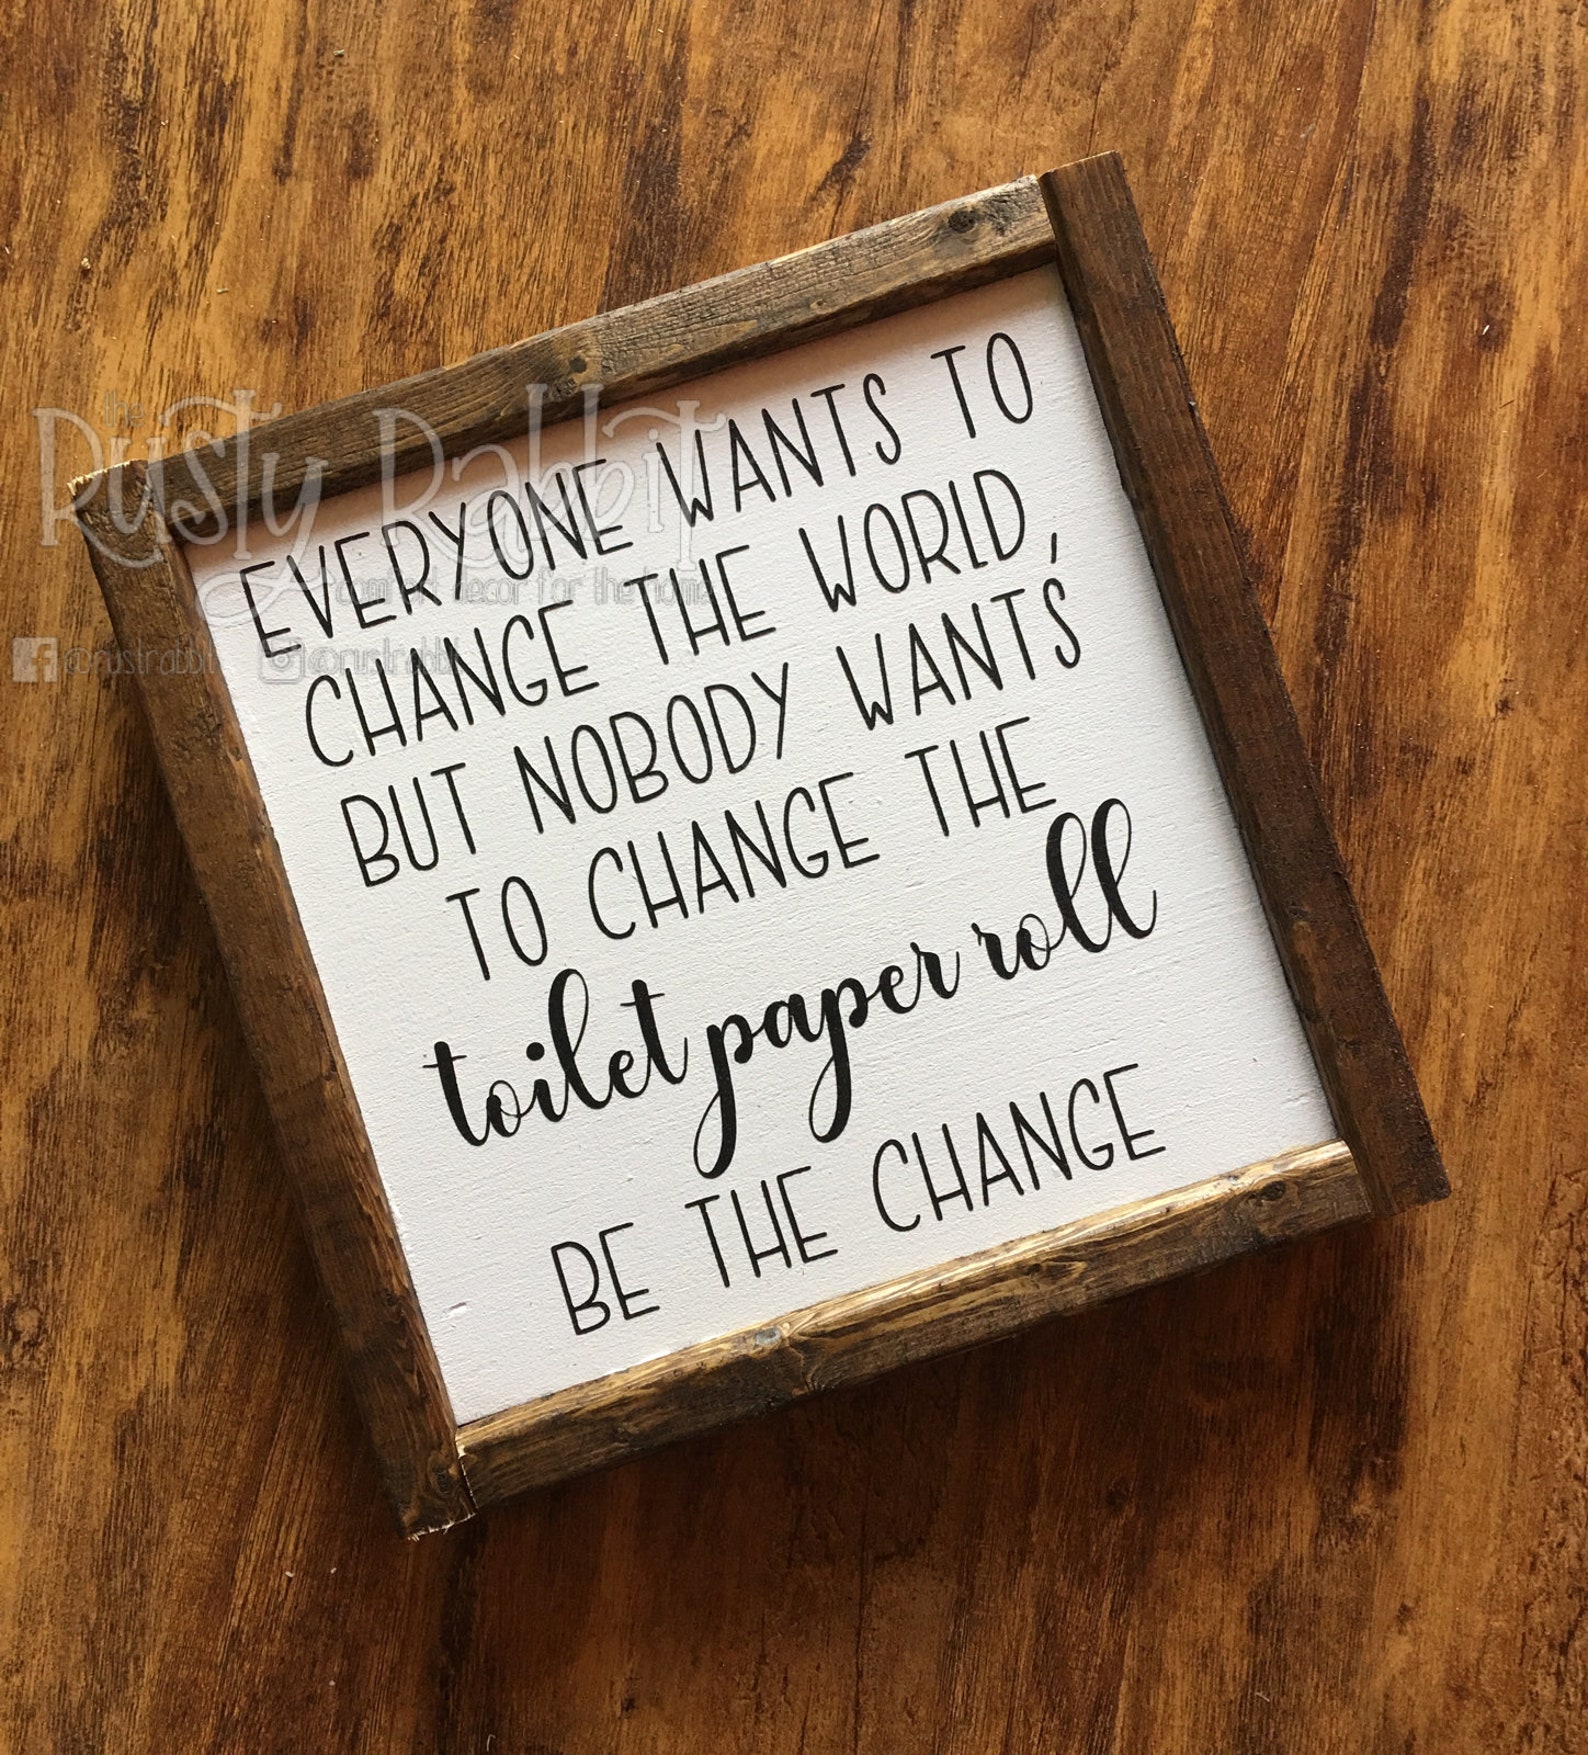 the
Rusty Rabbit
decor for the home
EVERYONE WANTS TO
CHANGE THE WORLD,
BUT NOBODY WANTS
TO CHANGE THE
toilet paper roll
BE THE CHANGE